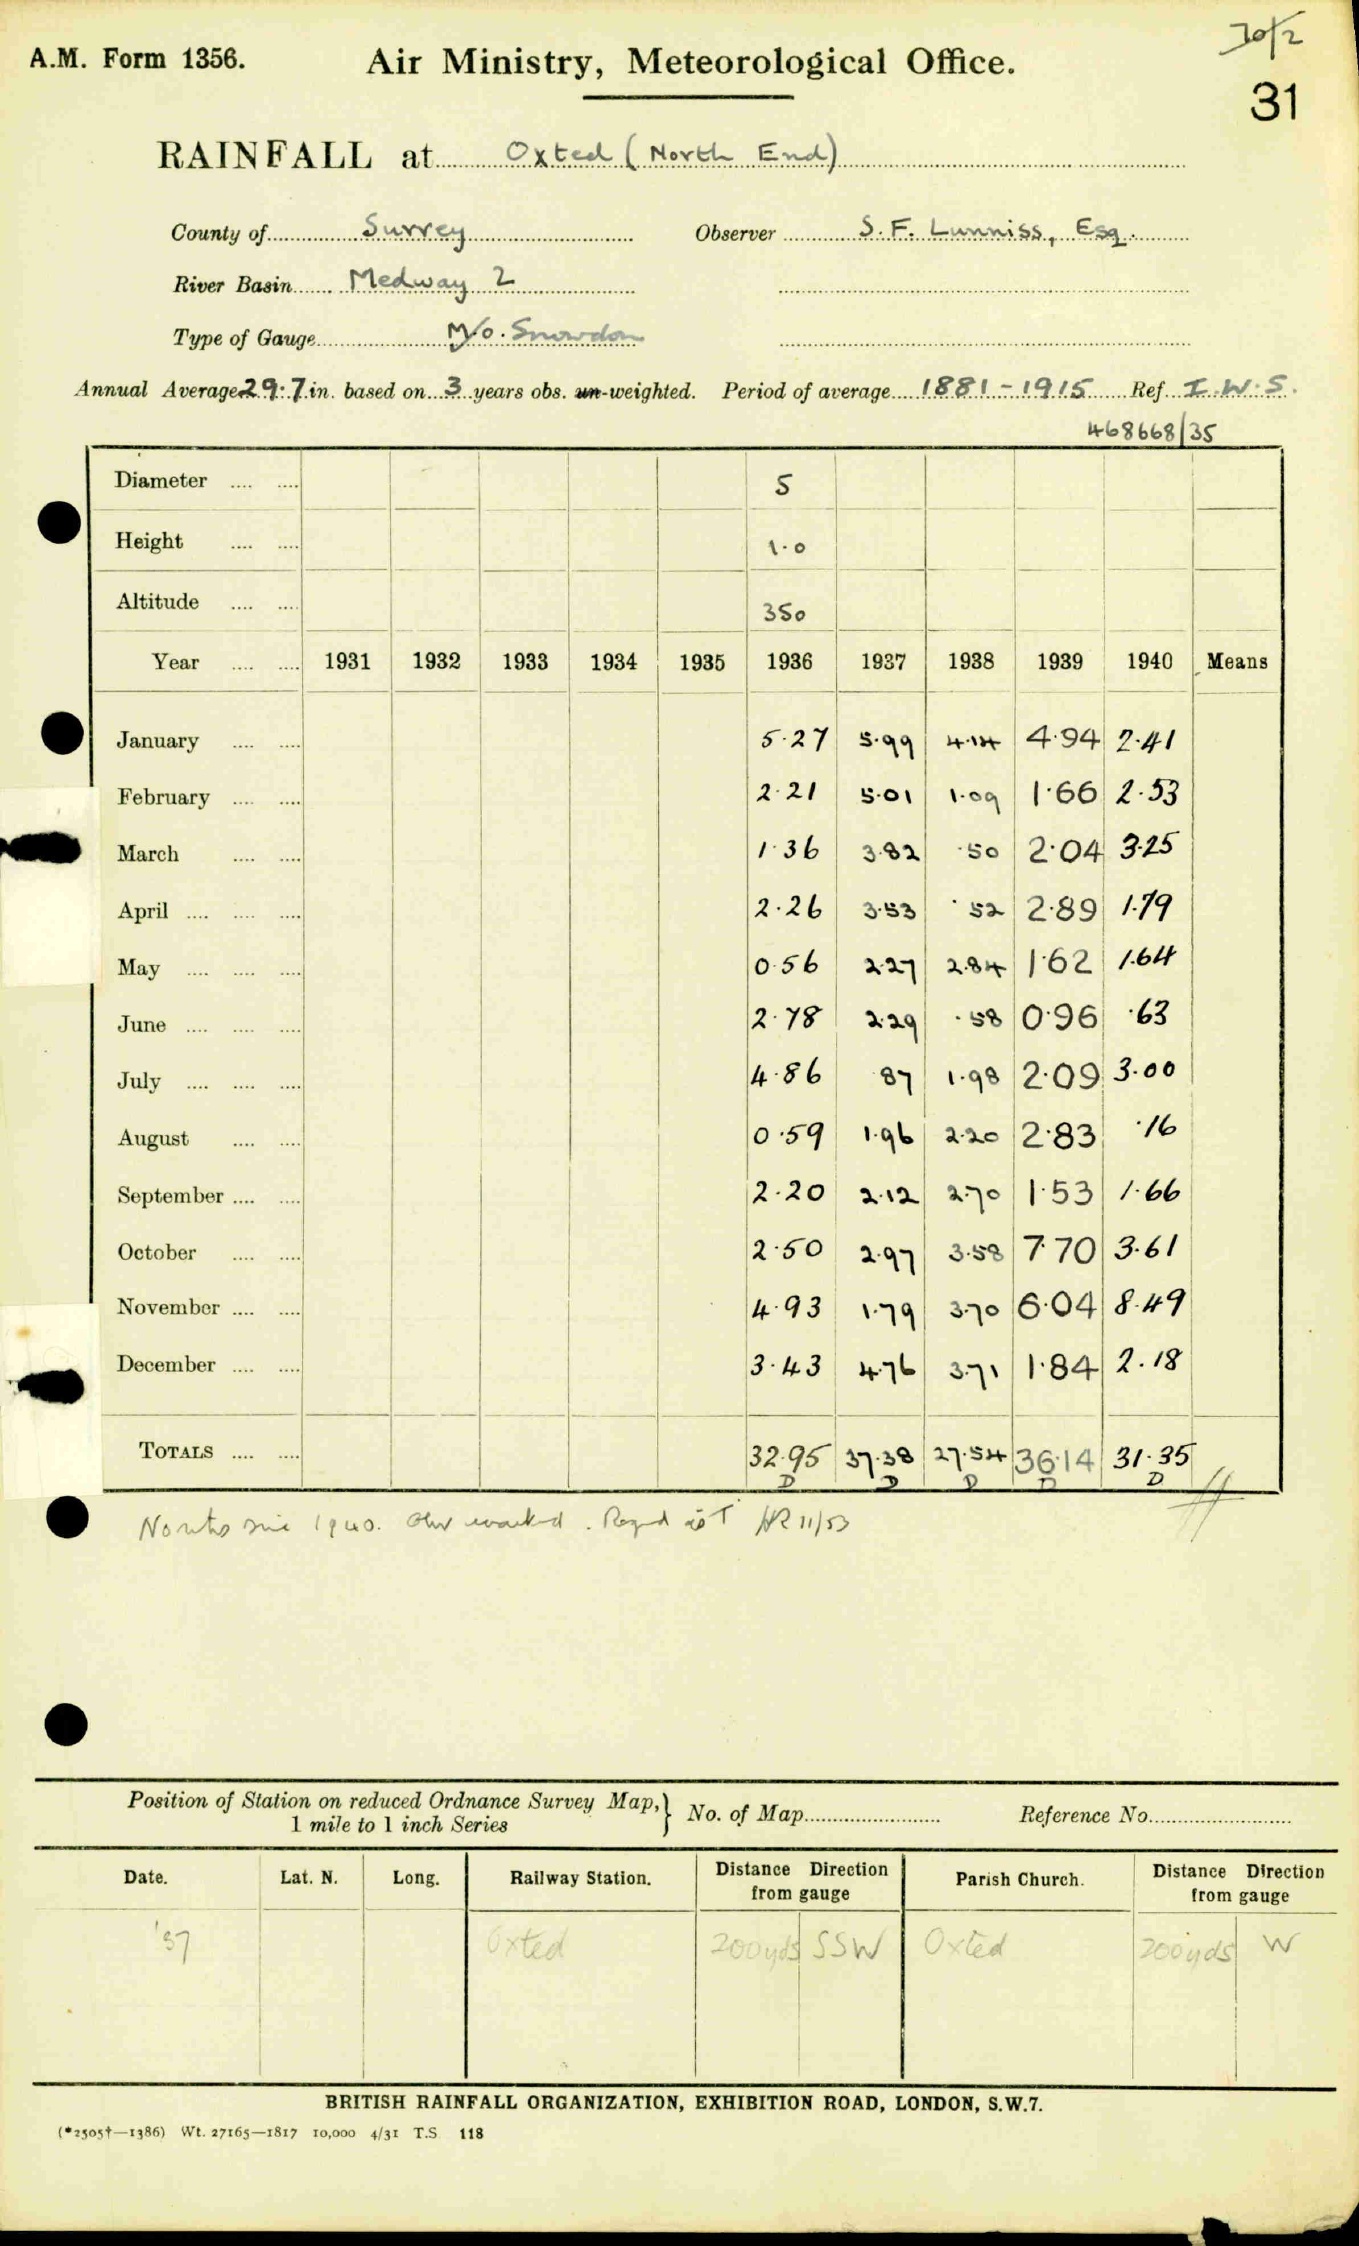 30/2
A.M. Form 1356. Air Ministry, Meteorological Office.
31
RAINFALL at Oxted (North End)
County of Surrey Observer S. F. Lunniss, Esq.
River Basin Medway 2
Type of Gauge M/O. Snowdon
Annual Average 29.7 in. based on 3 years obs. un-weighted. Period of average 1881-1915 Ref. I.W.S.
468668/35
Diameter .... .... 5
Height .... .... 1.0
Altitude .... .... 350
Year .... .... 1931 1932 1933 1934 1935 1936 1937 1938 1939 1940 Means
January .... .... 5.27 5.99 4.14 4.94 2.41
February .... .... 2.21 5.01 1.09 1.66 2.53
March .... .... 1.36 3.82 .50 2.04 3.25
April .... .... .... 2.26 3.53 .52 2.89 1.79
May .... .... .... 0.56 2.27 2.84 1.62 1.64
June .... .... .... 2.78 2.29 .58 0.96 .63
July .... .... .... 4.86 87 1.98 2.09 3.00
August .... .... 0.59 1.96 2.20 2.83 .16
September .... .... 2.20 2.12 2.70 1.53 1.66
October .... .... 2.50 2.97 3.58 7.70 3.61
November .... .... 4.93 1.79 3.70 6.04 8.49
December .... .... 3.43 4.76 3.71 1.84 2.18
TOTALS .... .... 32.95 37.38 27.54 36.14 31.35
D D D D D
1940. 11/53
Position of Station on reduced Ordnance Survey Map, } No. of Map Reference No.
1 mile to 1 inch Series
Date. Lat. N. Long. Railway Station. Distance Direction from gauge Parish Church. Distance Direction from gauge
'37 Oxted 200yds SSW Oxted 200yds W
BRITISH RAINFALL ORGANIZATION, EXHIBITION ROAD, LONDON, S.W.7.
(*2505†—1386) Wt. 27165—1817 10,000 4/31 T.S 118